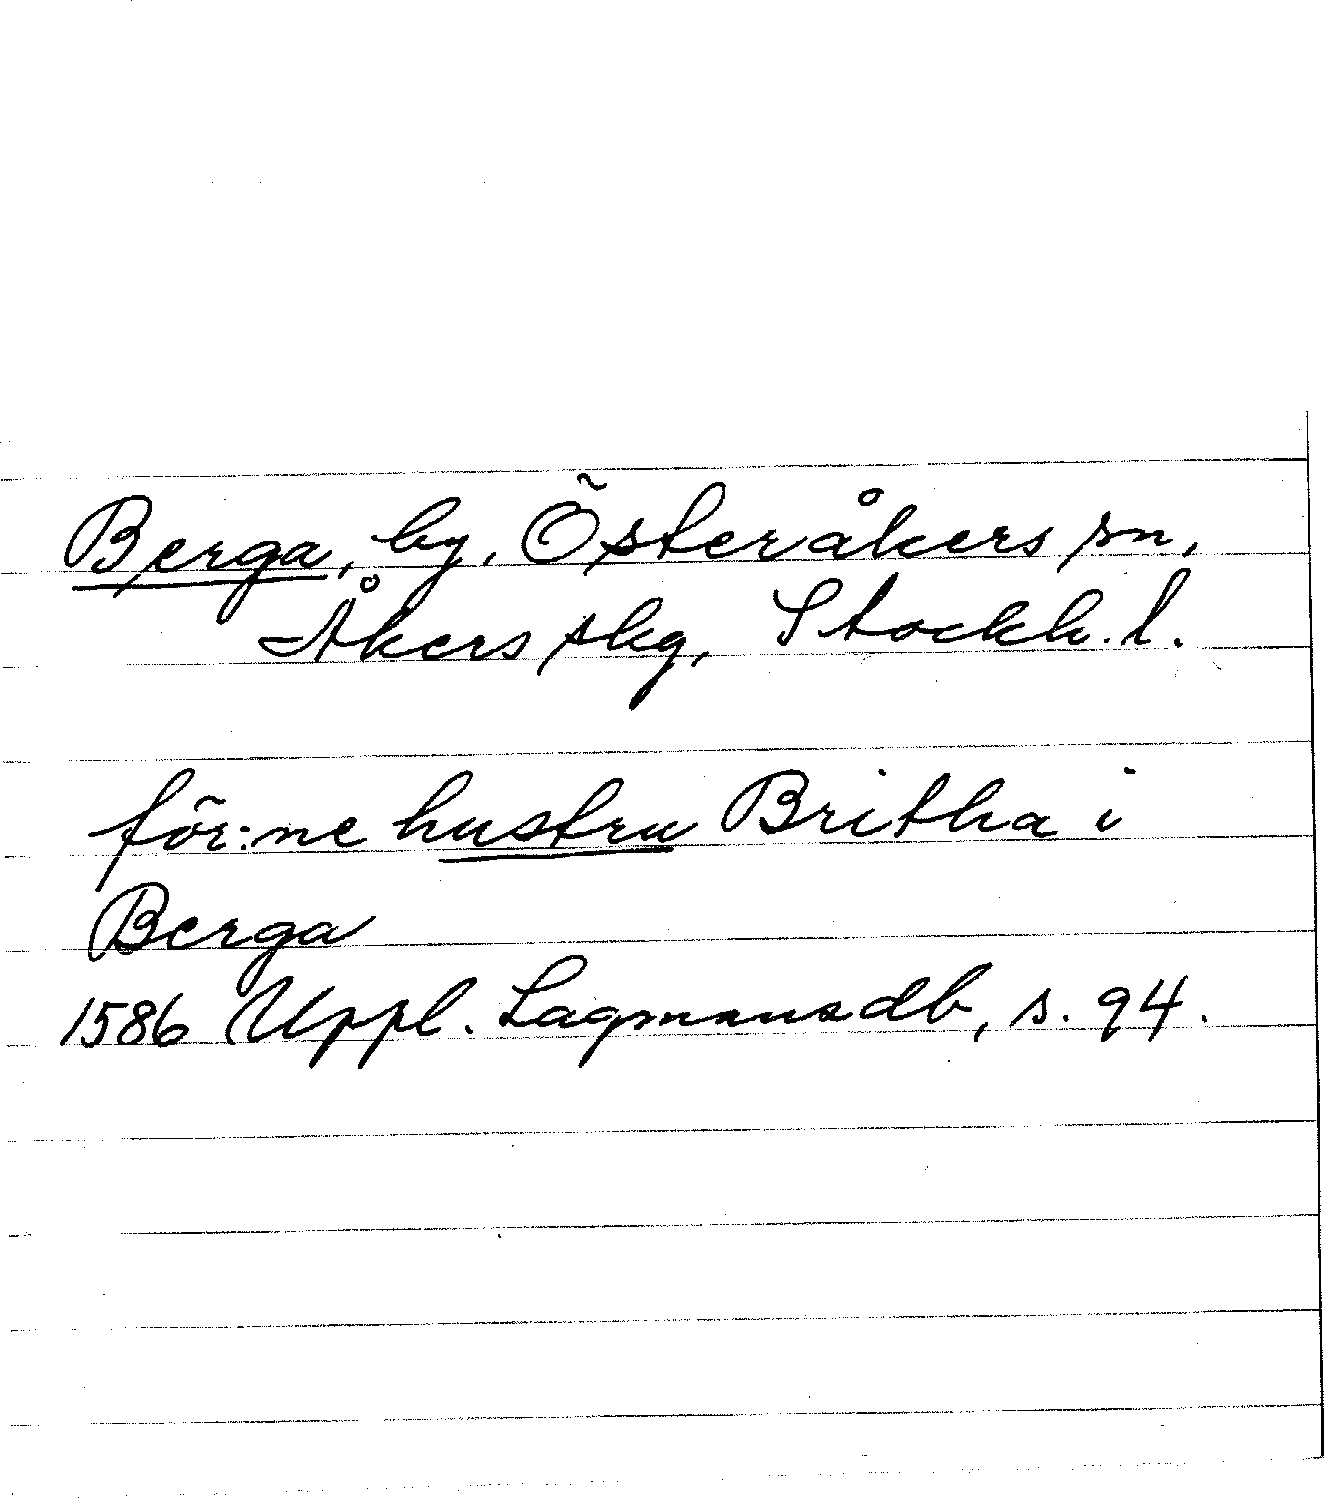 Berga, by, Österåkers sn,
Åkers skg, Stockh. l.
för:ne hustru Britha i
Berga
1586 Uppl. Lagmansdb, s. 94.